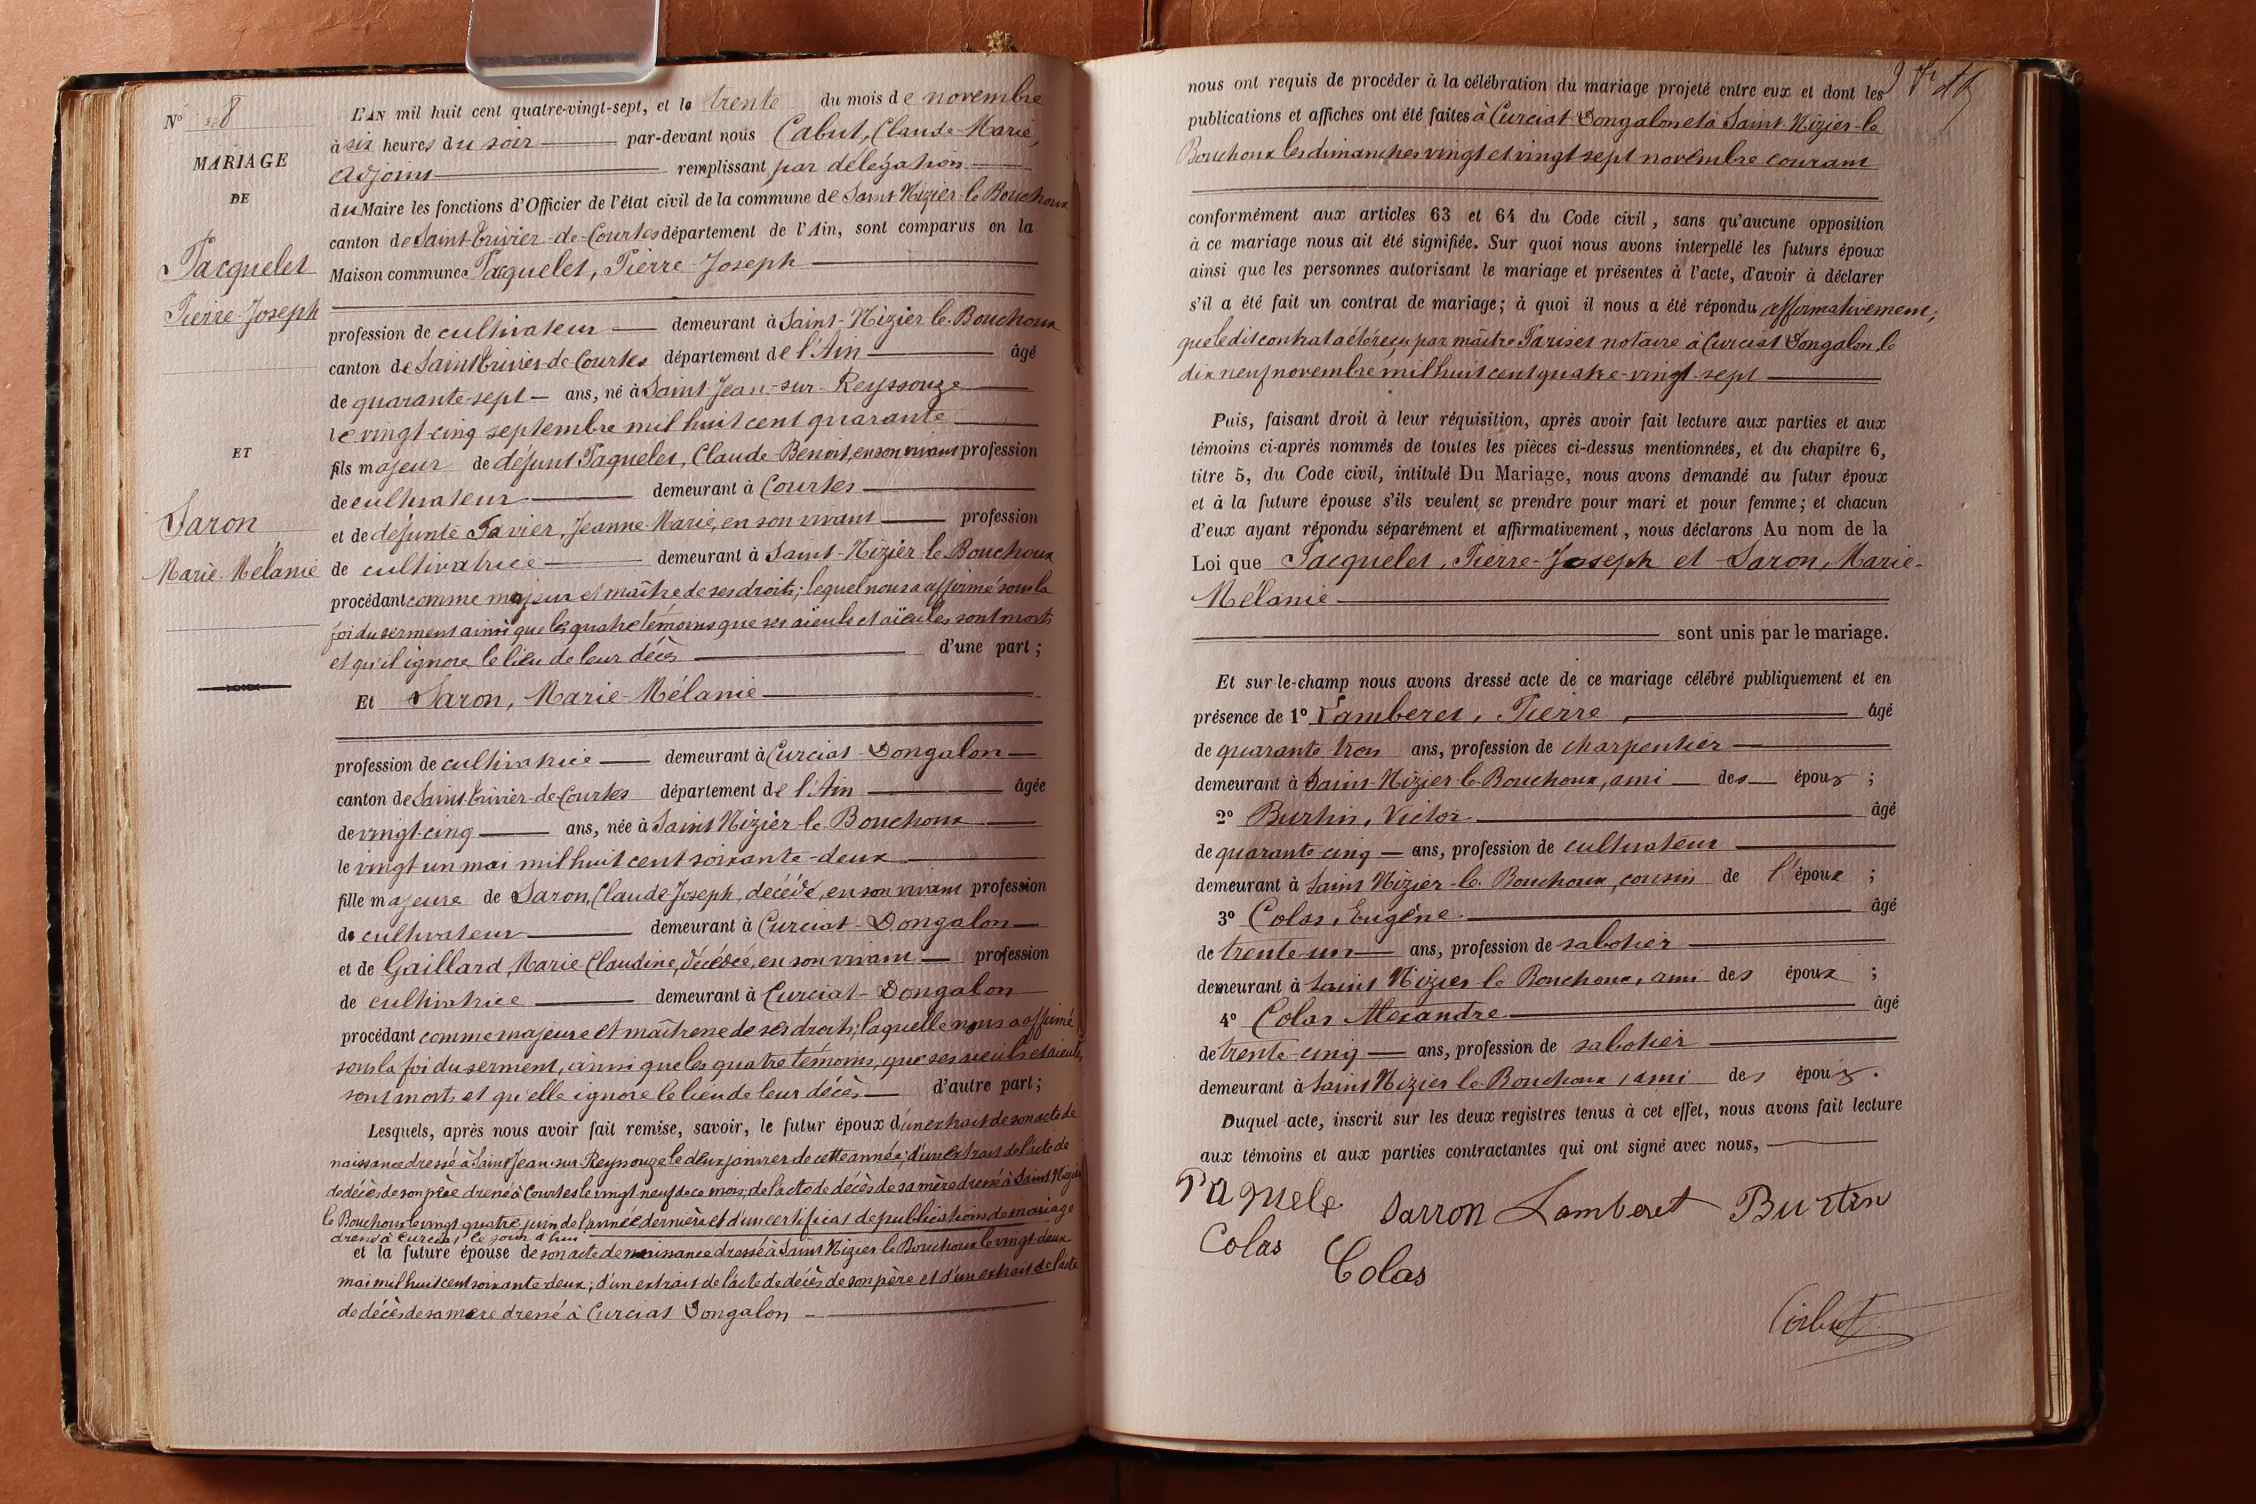 N° 8
MARIAGE
DE
Pacquelet
Pierre-Joseph
ET
Saron
Marie-Mélanie
L'AN mil huit cent quatre-vingt-sept, et le trente du mois de novembre
à six heures du soir par-devant nous Cabut, Claude-Marie,
Adjoint remplissant par délégation
du Maire les fonctions d'Officier de l'état civil de la commune de Saint-Nizier-le-Bouchoux
canton de Saint-Trivier-de-Courtes département de l'Ain, sont comparus en la
Maison commune Pacquelet, Pierre-Joseph
profession de cultivateur demeurant à Saint-Nizier-le-Bouchoux
canton de Saint-Trivier-de-Courtes département de l'Ain âgé
de quarante-sept ans, né à Saint-Jean-sur-Reyssouze
le vingt-cinq septembre mil huit cent quarante
fils majeur de défunt Paquelet, Claude-Benoit, en son vivant profession
de cultivateur demeurant à Courtes
et de défunte Tavier, Jeanne-Marie, en son vivant profession
de cultivatrice demeurant à Saint-Nizier-le-Bouchoux
procédant comme majeur et maître de ses droits; lequel nous a affirmé sous la
foi du serment ainsi que les quatre témoins que ses aïeuls et aïeules sont morts
et qu'il ignore le lieu de leur décès d'une part;
Et Saron, Marie-Mélanie
profession de cultivatrice demeurant à Curciat-Dongalon
canton de Saint-Trivier-de-Courtes département de l'Ain âgée
de vingt-cinq ans, née à Saint Nizier-le-Bouchoux
le vingt un mai mil huit cent soixante-deux
fille majeure de Saron, Claude-Joseph, décédé, en son vivant profession
de cultivateur demeurant à Curciat-Dongalon
et de Gaillard, Marie Claudine, décédée, en son vivant profession
de cultivatrice demeurant à Curciat-Dongalon
procédant comme majeure et maîtresse de ses droits; laquelle nous a affirmé
sous la foi du serment, ainsi que les quatre témoins, que ses aïeuls et aïeules
sont morts et qu'elle ignore le lieu de leur décès d'autre part;
Lesquels, après nous avoir fait remise, savoir, le futur époux d'un extrait de son acte de
naissance dressé à Saint Jean-sur-Reyssouze le deux janvier de cette année; d'un extrait de l'acte de
de décès de son père dressé à Courtes le vingt neuf de ce mois; de l'acte de décès de sa mère dressé à Saint-Nizier
le Bouchoux le vingt quatre juin de l'année dernière et d'un certificat de publication de mariage
dressé à Curciat le jour d'hui
et la future épouse de son acte de naissance dressé à Saint Nizier le Bouchoux le vingt-deux
mai mil huit cent soixante-deux; d'un extrait de l'acte de décès de son père et d'un extrait de l'acte
de décès de sa mère dressé à Curciat Dongalon
nous ont requis de procéder à la célébration du mariage projeté entre eux et dont les
publications et affiches ont été faites à Curciat-Dongalon et à Saint-Nizier-le
Bouchoux les dimanches vingt et vingt sept novembre courant
conformément aux articles 63 et 64 du Code civil, sans qu'aucune opposition
à ce mariage nous ait été signifiée. Sur quoi nous avons interpellé les futurs époux
ainsi que les personnes autorisant le mariage et présentes à l'acte, d'avoir à déclarer
s'il a été fait un contrat de mariage; à quoi il nous a été répondu affirmativement;
que le dit contrat a été reçu par maître Pariset notaire à Curciat Dongalon, le
dix neuf novembre mil huit cent quatre-vingt-sept
Puis, faisant droit à leur réquisition, après avoir fait lecture aux parties et aux
témoins ci-après nommés de toutes les pièces ci-dessus mentionnées, et du chapitre 6,
titre 5, du Code civil, intitulé Du Mariage, nous avons demandé au futur époux
et à la future épouse s'ils veulent se prendre pour mari et pour femme; et chacun
d'eux ayant répondu séparément et affirmativement, nous déclarons Au nom de la
Loi que Pacquelet, Pierre-Joseph et Saron, Marie-
Mélanie
sont unis par le mariage.
Et sur-le-champ nous avons dressé acte de ce mariage célébré publiquement et en
présence de 1° Lamberet, Pierre âgé
de quarante-trois ans, profession de charpentier
demeurant à Saint-Nizier-le-Bouchoux, ami des époux;
2° Burtin, Victor âgé
de quarante-cinq ans, profession de cultivateur
demeurant à Saint Nizier-le-Bouchoux, cousin de l'époux;
3° Colas, Eugène âgé
de trente-un ans, profession de sabotier
demeurant à Saint Nizier le Bouchoux, ami des époux;
4° Colas Alexandre âgé
de trente-cinq ans, profession de sabotier
demeurant à Saint Nizier-le-Bouchoux, ami des époux.
Duquel acte, inscrit sur les deux registres tenus à cet effet, nous avons fait lecture
aux témoins et aux parties contractantes qui ont signé avec nous,
Paquele Sarron Lamberet Burtin
Colas Colas